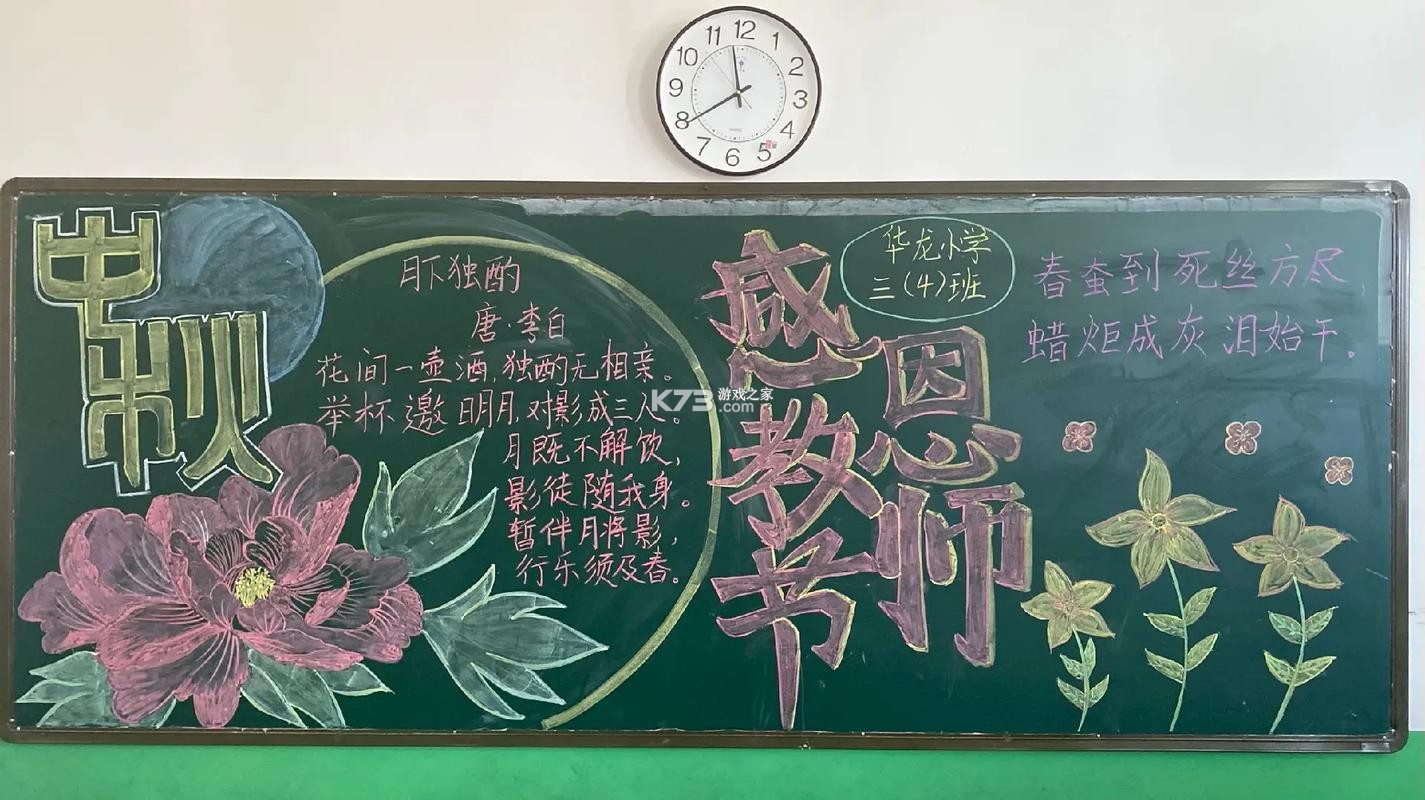 12
11 1
10 2
9 3
8 4
7 5
6
中秋
月下独酌
唐·李白
花间一壶酒,独酌无相亲。
举杯邀明月,对影成三人。
月既不解饮,
影徒随我身。
暂伴月将影,
行乐须及春。
感恩
教师
节
华龙小学
三(4)班
春蚕到死丝方尽
蜡炬成灰泪始干。
K73 游戏之家
.com